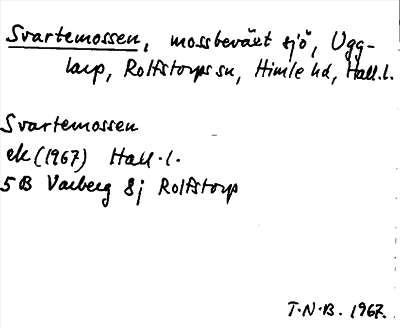 Svartemossen, mossbeväxt sjö, Ugg-
larp, Rolfstorps sn, Himle hd, Hall.l.
Svartemossen
ek (1967) Hall.l.
5B Varberg 8j Rolfstorp
T.N.B. 1967.